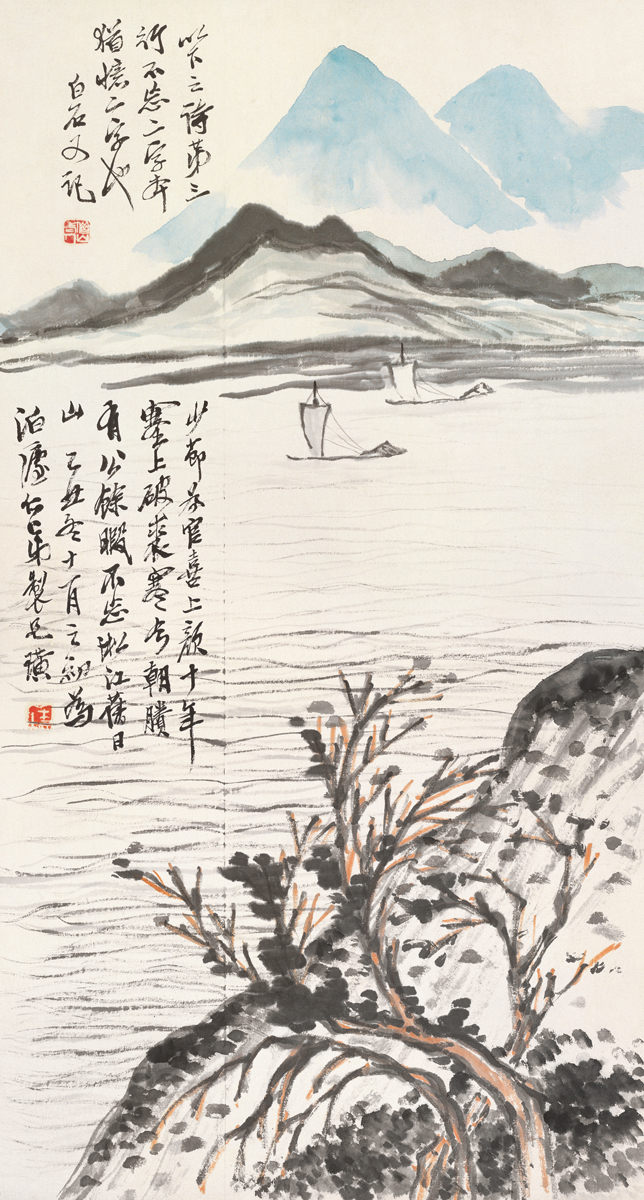 以下之詩第三
行不忘二字本
猶憶二字也
白石又記
官喜上顏十年
塞上破裘寒今朝牘
有公餘暇不忘湘江舊日
山 乙丑冬十一月之初為
泊廬仁弟製兄璜